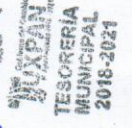 TUXPAN
TESORERÍA
MUNICIPAL
2018-2021